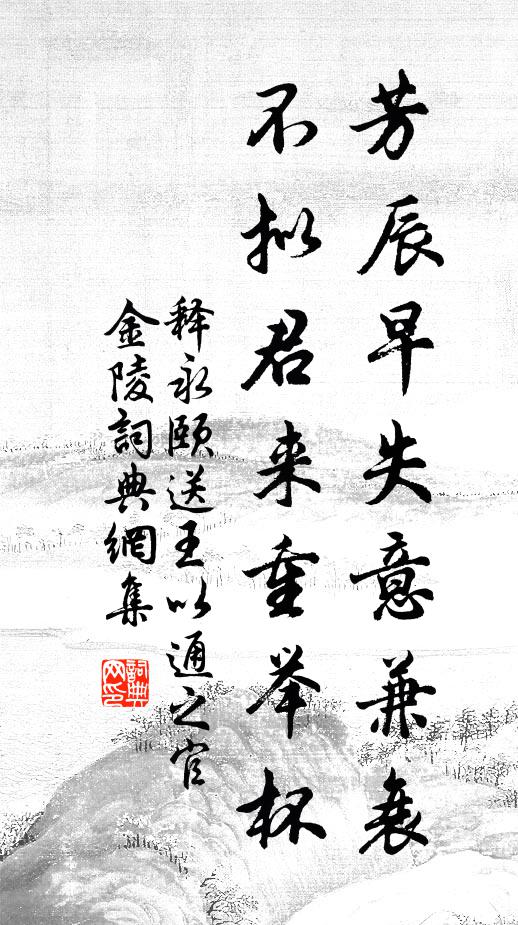 芳辰早失意兼衰
不拟君来重举杯
释永颐送王以通之官
金陵詞典網集
詞典网印